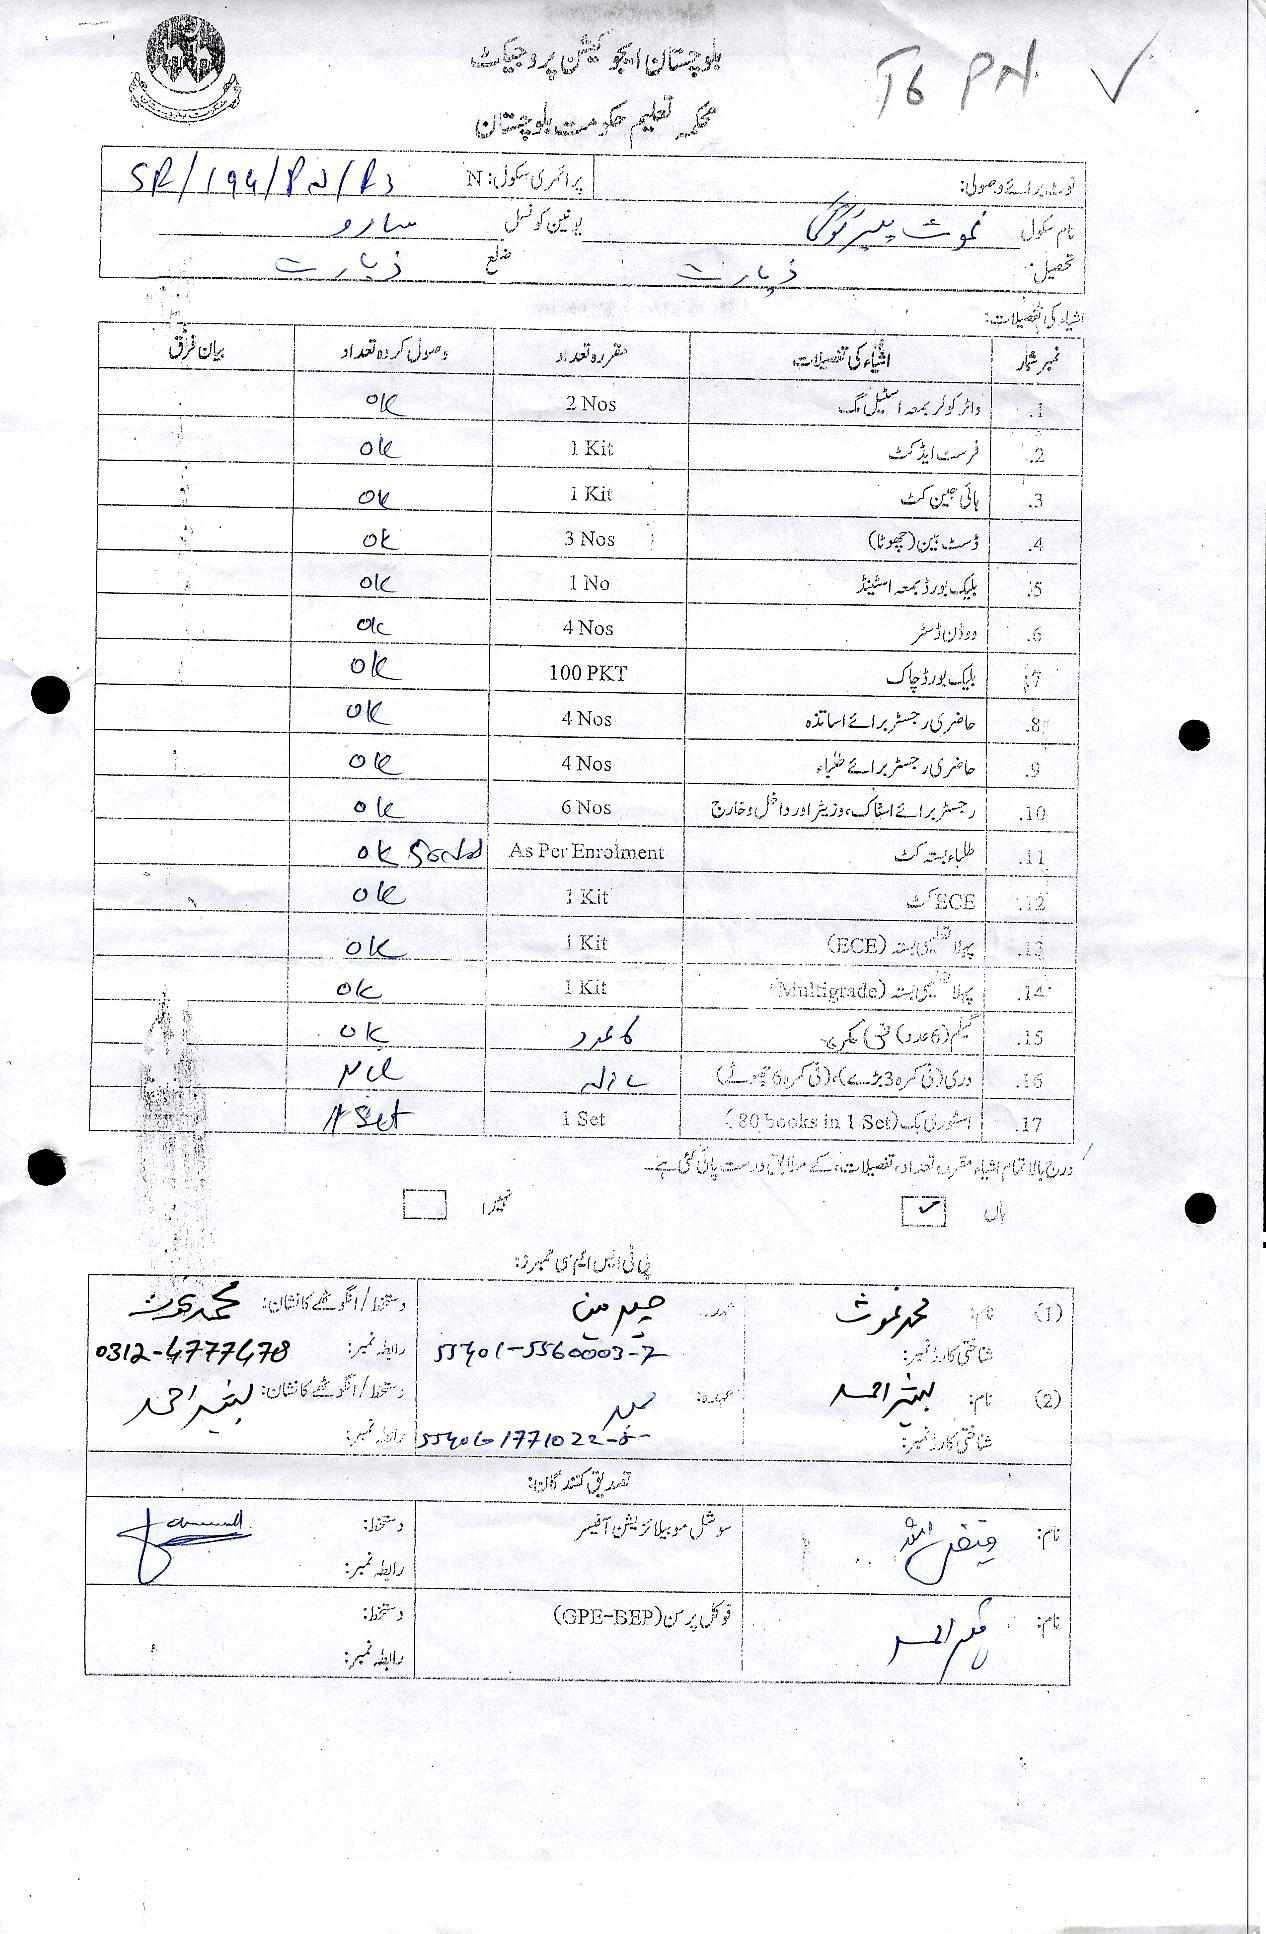 T6 PN ✓
بلوچستان ایجوکیشن پروجیکٹ
محکمہ تعلیم حکومت بلوچستان
نوٹ برائے وصولی: پرائمری سکول: N
نام سکول غوث یونین کونسل سارو
تحصیل: زیارت ضلع زیارت
اشیاء کی تفصیلات:
نمبر شمار اشیاء کی تفصیلات مقررہ تعداد وصول کردہ تعداد بیان فرق
1. واٹر کولر بمعہ اسٹیل مگ 2 Nos OK
2. فرسٹ ایڈ کٹ 1 Kit OK
3. ہائی جین کٹ 1 Kit OK
4. ڈسٹ بین (چھوٹا) 3 Nos OK
5. بلیک بورڈ بمعہ اسٹینڈ 1 No OK
6. ووڈن ڈسٹر 4 Nos OK
7. بلیک بورڈ چاک 100 PKT OK
8. حاضری رجسٹر برائے اساتذہ 4 Nos OK
9. حاضری رجسٹر برائے طلباء 4 Nos OK
10. رجسٹر برائے اسٹاک، وزیٹر اور داخل و خارج 6 Nos OK
11. طلباء بستہ کٹ As Per Enrolment OK
12. ECE کٹ 1 Kit OK
13. پہلا تعلیمی بستہ (ECE) 1 Kit OK
14. پہلا تعلیمی بستہ (Multigrade) 1 Kit OK
15. گلیم (6 عدد) فی کمرہ OK
16. دری (فی کمرہ 3 بڑے)، (فی کمرہ 6 چھوٹے)
17. اسٹوری بک (80 books in 1 Set) 1 Set 1 Set
درج بالا تمام اشیاء مقررہ تعداد، تفصیلات، کے مطابق درست پائی گئی ہے۔
ہاں ✓ نہیں
پی ٹی ایس ایم سی ممبرز:
(1) نام: محمد غوث عہدہ: چیرمین دستخط / انگوٹھے کا نشان: محمد غوث
شناختی کارڈ نمبر: 55401-5560003-7 رابطہ نمبر: 0312-4777478
(2) نام: بشیر احمد عہدہ: دستخط / انگوٹھے کا نشان: بشیر احمد
شناختی کارڈ نمبر: رابطہ نمبر:
تصدیق کنندگان:
نام: سوشل موبیلائزیشن آفیسر دستخط:
رابطہ نمبر:
نام: فوکل پرسن (GPE-BEP) دستخط:
رابطہ نمبر: